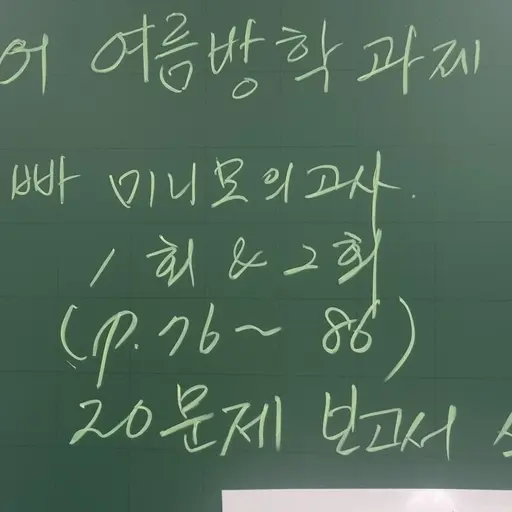 어 여름방학 과제
빠 미니모의고사.
1회 & 2회
(p.76~ 86)
20문제 보고서